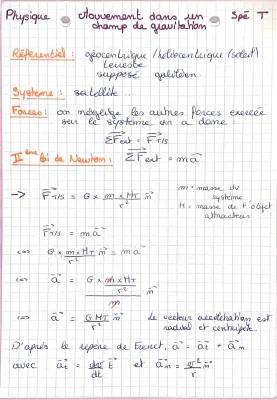 Physique Mouvement dans un Spé T
champ de gravitation
Référentiel : géocentrique / héliocentrique (soleil)
terrestre
supposé galiléen.
Système : satellite...
Forces : on néglige les autres forces exercées
sur le système on a donc :
ΣF⃗ext = F⃗T/S
IIème loi de Newton : ΣF⃗ext = ma⃗
→ F⃗T/S = G × m × MT / r² n⃗ m = masse du système
M = masse de l'objet attracteur
F⃗T/S = ma⃗
⇔ G × m × MT / r² n⃗ = ma⃗
⇔ a⃗ = G × m × MT / r² / m n⃗
⇔ a⃗ = G MT / r² n⃗ le vecteur accélération est
radial et centripète.
D'après le repère de Frenet, a⃗ = a⃗t + a⃗n
avec a⃗t = dv/dt t⃗ et a⃗n = v²/r n⃗